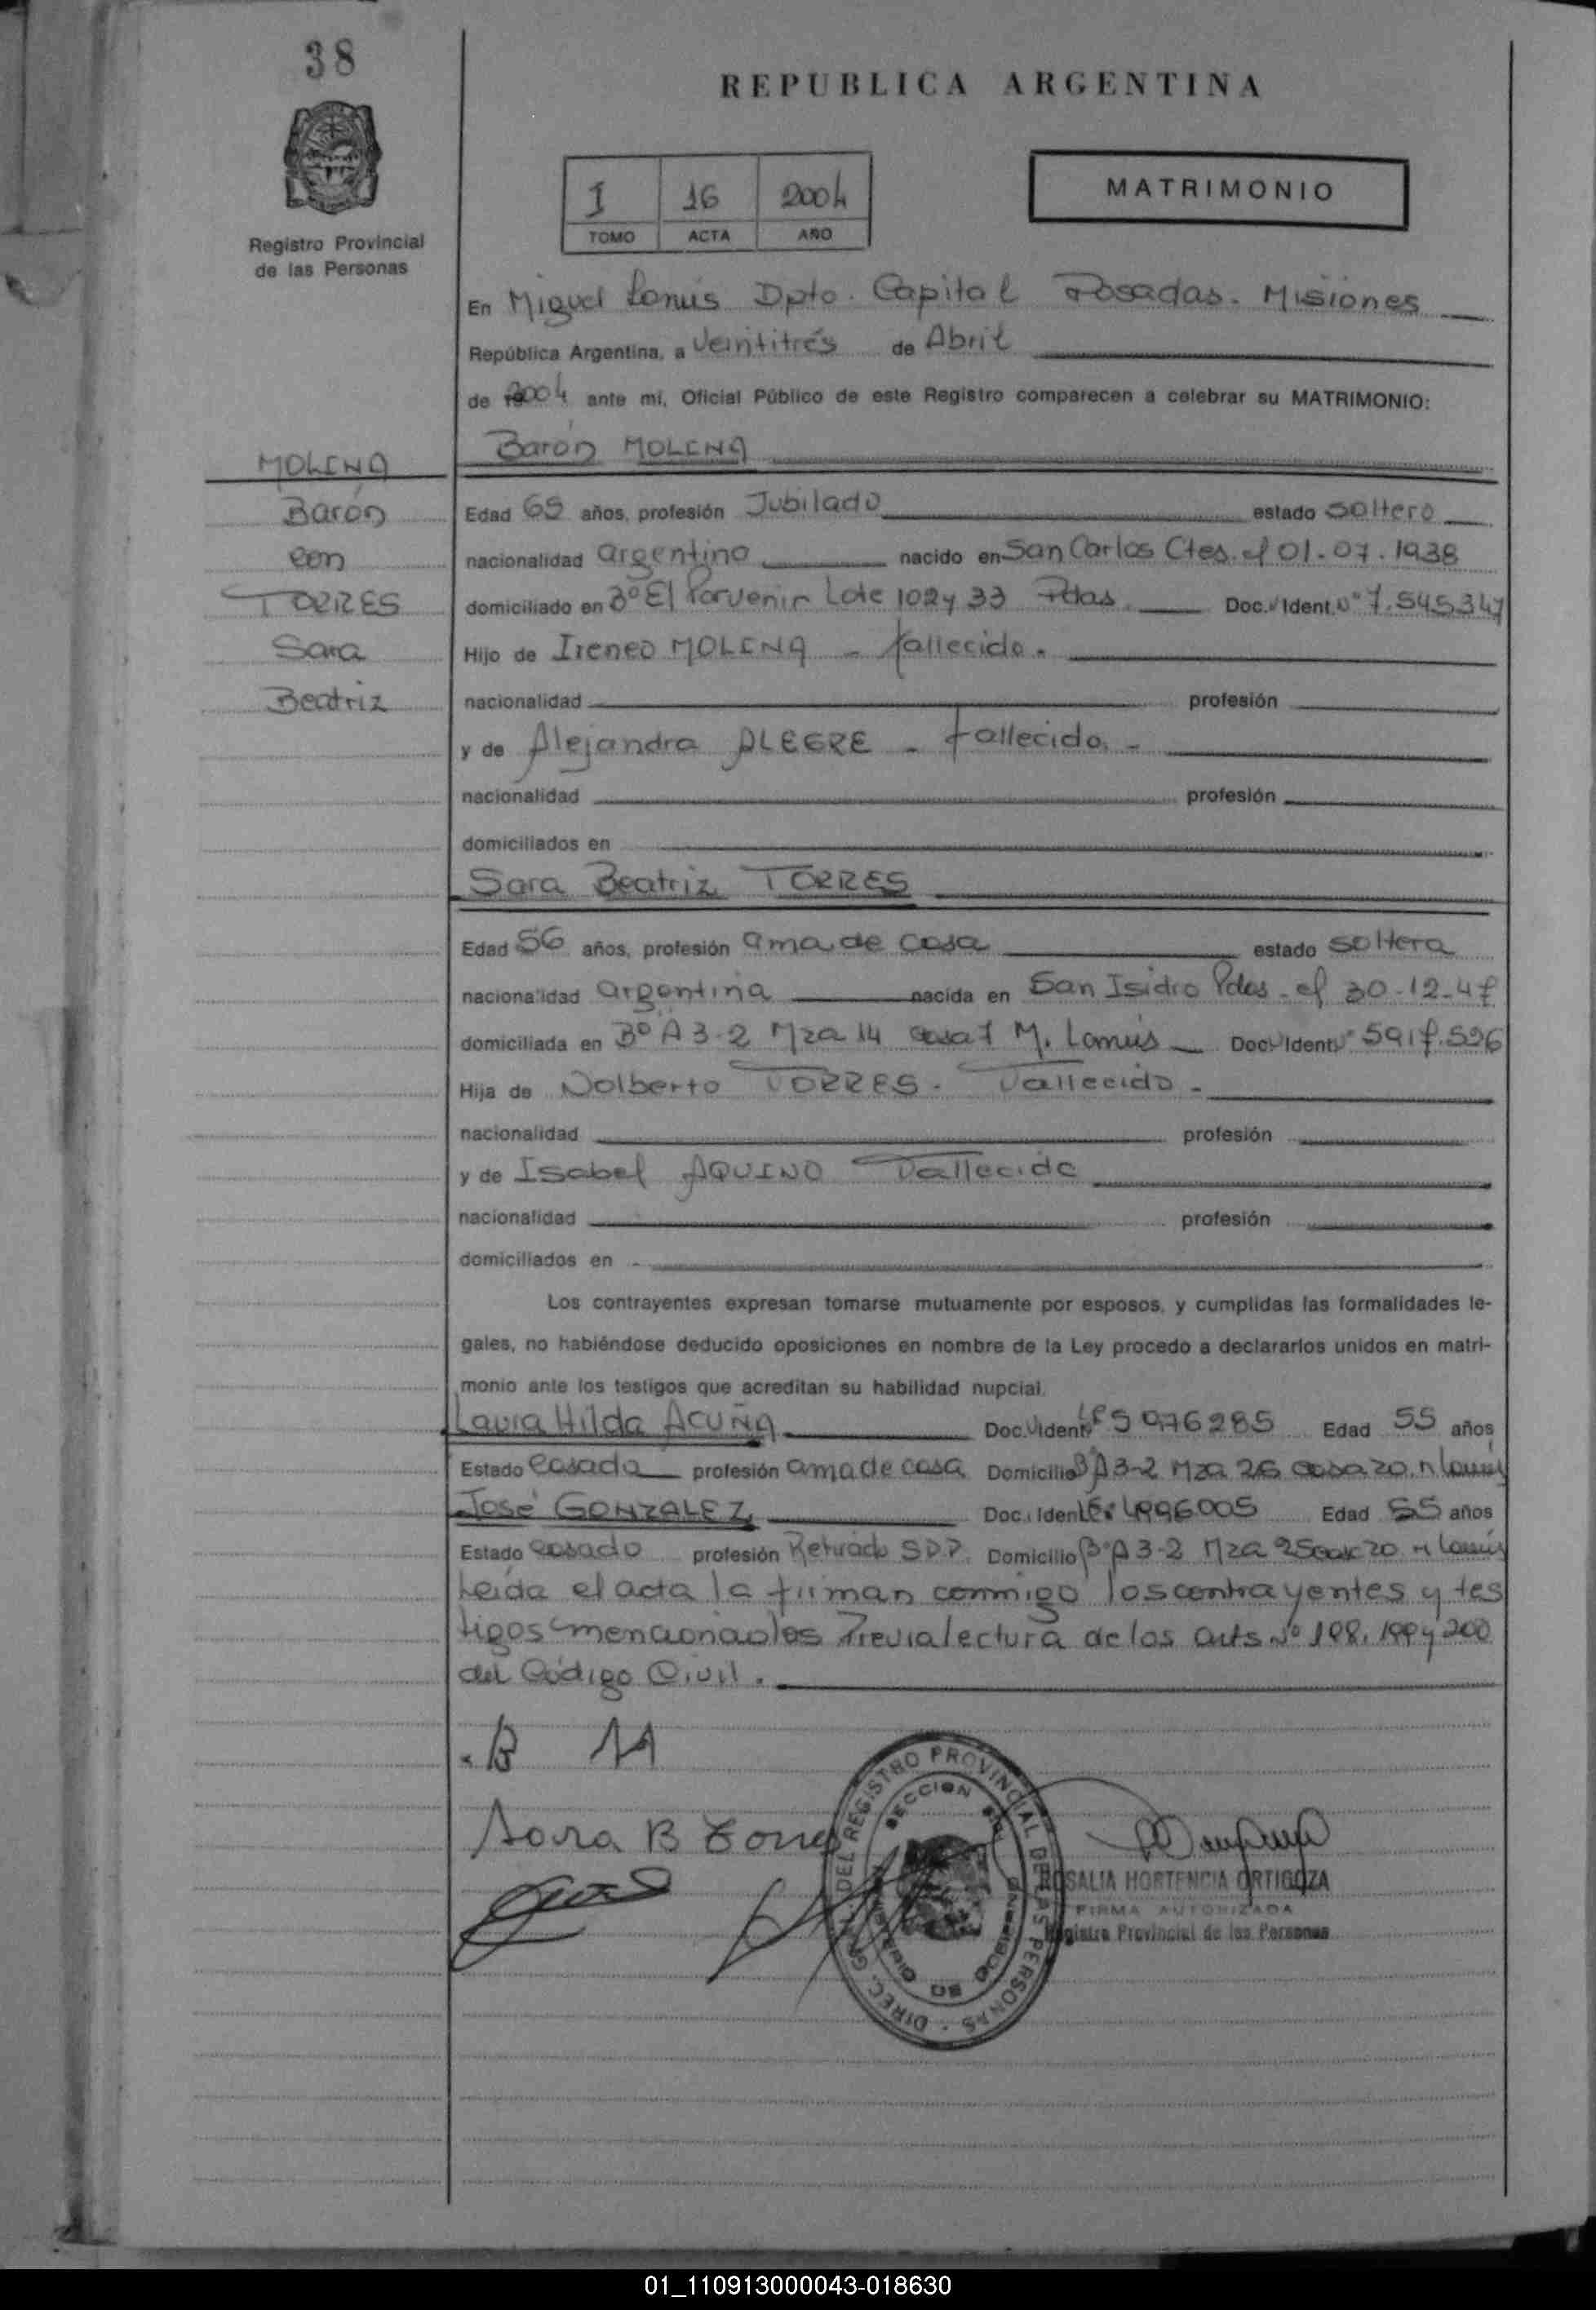 38
REPUBLICA ARGENTINA
I 16 2004
TOMO ACTA AÑO
MATRIMONIO
Registro Provincial
de las Personas
En Miguel Lanús Dpto. Capital Posadas. Misiones
República Argentina, a Veintitrés de Abril
de 2004 ante mi, Oficial Público de este Registro comparecen a celebrar su MATRIMONIO:
Barón MOLINA
MOLINA
Barón
con
TORRES
Sara
Beatriz
Edad 65 años, profesión Jubilado estado soltero
nacionalidad argentino nacido en San Carlos Ctes. el 01-07-1938
domiciliado en Bº El Porvenir Lote 102 y 33 Pdas. Doc. Ident. Nº 7.545.347
Hijo de Ireneo MOLINA - fallecido.
nacionalidad profesión
y de Alejandra ALEGRE - fallecida. -
nacionalidad profesión
domiciliados en
Sara Beatriz TORRES
Edad 56 años, profesión ama de casa estado soltera
nacionalidad argentina nacida en San Isidro Pdas. el 30-12-47
domiciliada en Bº A 3-2 Mza 14 casa 7 M. Lanús Doc. Ident. Nº 5917.596
Hija de Nolberto TORRES. Fallecido -
nacionalidad profesión
y de Isabel AQUINO Fallecida
nacionalidad profesión
domiciliados en
Los contrayentes expresan tomarse mutuamente por esposos, y cumplidas las formalidades le-
gales, no habiéndose deducido oposiciones en nombre de la Ley procedo a declararlos unidos en matri-
monio ante los testigos que acreditan su habilidad nupcial.
Laura Hilda ACUÑA Doc. Ident. Edad 55 años
Estado casada profesión ama de casa Domicilio Bº A 3-2 Mza 26 casa 20. M Lanús
José GONZALEZ Doc. Ident. LE: 4996005 Edad 55 años
Estado casado profesión Retirado SPP. Domicilio Bº A 3-2 Mza 20 M Lanús
Leida el acta la firman conmigo los contrayentes y tes
tigos mencionados Previa lectura de los arts Nº 198, 199 y 200
del Código Civil.
B M
Sara B Torres
DIREC. GRAL. DEL REGISTRO PROVINCIAL DE LAS PERSONAS
SECCION
ROSALIA HORTENCIA ORTIGOZA
FIRMA AUTORIZADA
Registro Provincial de las Personas
01_110913000043-018630